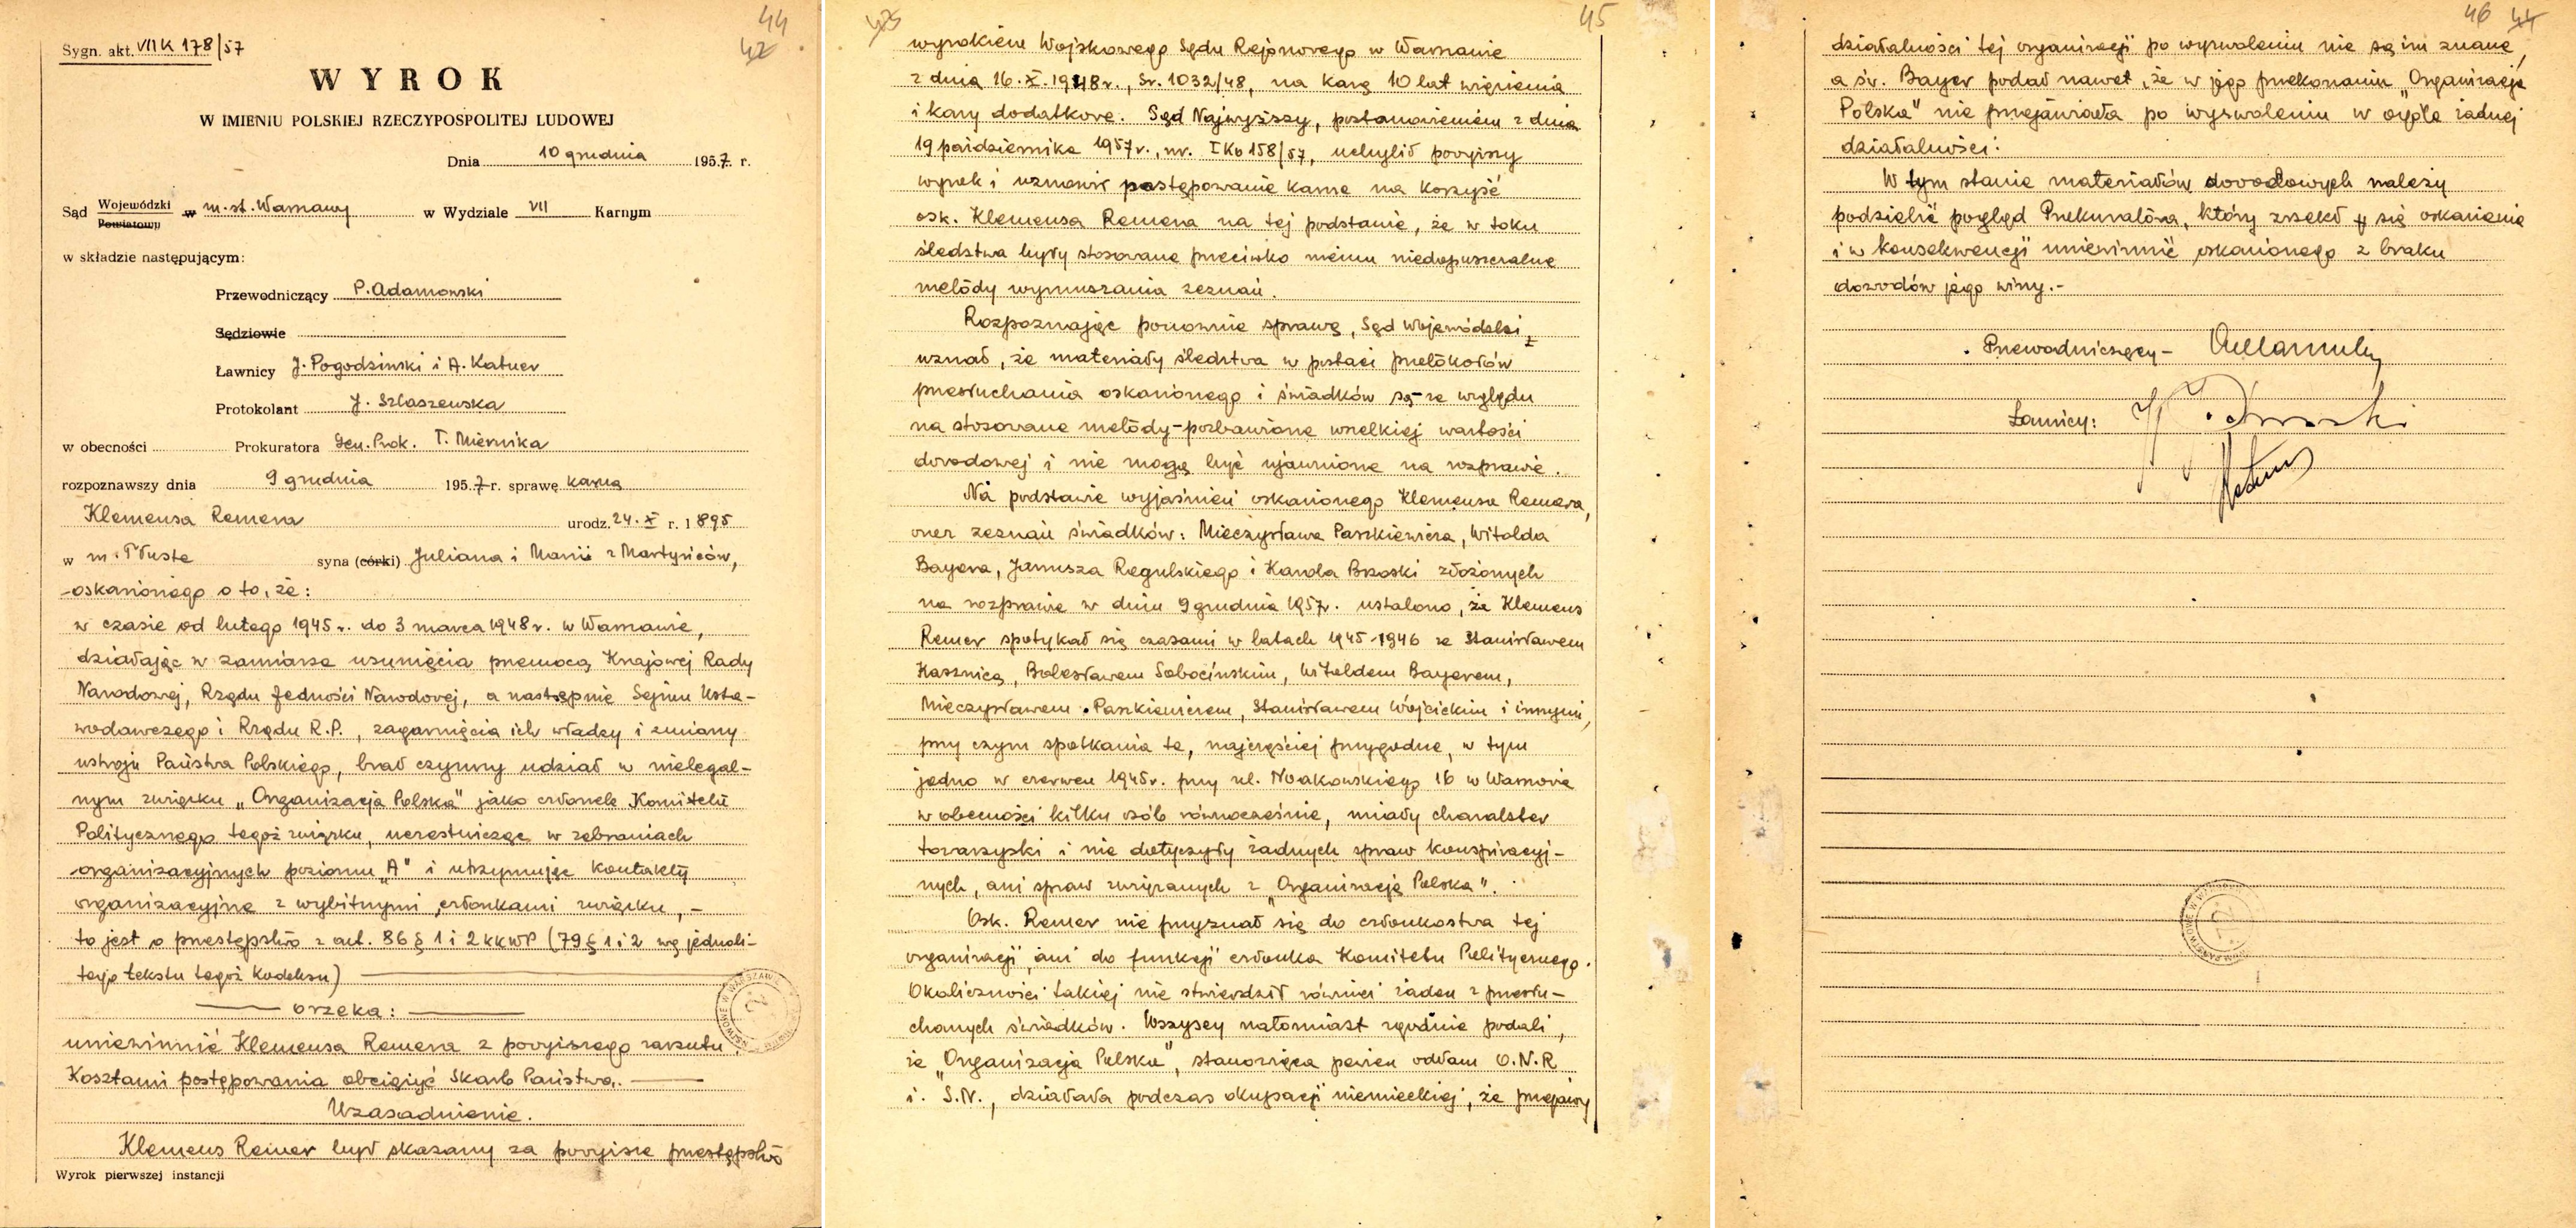 44
42
Sygn. akt. VII K 178/57
WYROK
W IMIENIU POLSKIEJ RZECZYPOSPOLITEJ LUDOWEJ
Dnia 10 grudnia 1957 r.
Sąd Wojewódzki w m. st. Warszawy w Wydziale VII Karnym
Powiatowy
w składzie następującym:
Przewodniczący P. Adamowski
Sędziowie
Ławnicy J. Pogodziński i A. Katner
Protokolant J. Szlaszewska
w obecności Prokuratora Gen. Prok. T. Miernika
rozpoznawszy dnia 9 grudnia 1957 r. sprawę karną
Klemensa Remera urodz. 24. X r. 1895
w m. Tłuste syna (córki) Juliana i Marii z Martynięów,
oskarżonego o to, że:
w czasie od lutego 1945 r. do 3 marca 1948 r. w Warszawie,
działając w zamiarze usunięcia przemocą Krajowej Rady
Narodowej, Rządu Jedności Narodowej, a następnie Sejmu Usta-
wodawczego i Rządu R.P., zagarnięcia ich władzy i zmiany
ustroju Państwa Polskiego, brał czynny udział w nielegal-
nym związku „Organizacja Polska" jako członek Komitetu
Politycznego tegoż związku, uczestnicząc w zebraniach
organizacyjnych poziomu „A" i utrzymując kontakty
organizacyjne z wybitnymi członkami związku, -
to jest o przestępstwo z art. 86 § 1 i 2 kkWP (79 § 1 i 2 wg jednoli-
tego tekstu tegoż kodeksu)
orzeka:
uniewinnić Klemensa Remera z powyższego zarzutu.
Kosztami postępowania obciążyć Skarb Państwa.
Uzasadnienie.
Klemens Remer był skazany za powyższe przestępstwo
Wyrok pierwszej instancji
43
45
wyrokiem Wojskowego Sądu Rejonowego w Warszawie
z dnia 16. X. 1948 r., Sr. 1032/48, na karę 10 lat więzienia
i kary dodatkowe. Sąd Najwyższy, postanowieniem z dnia
19 października 1957 r., nr. I Ko 158/57, uchylił powyższy
wyrok i wznowił postępowanie karne na korzyść
osk. Klemensa Remera na tej podstawie, że w toku
śledztwa były stosowane przeciwko niemu niedopuszczalne
metody wymuszania zeznań.
Rozpoznając ponownie sprawę, Sąd Wojewódzki
uznał, że materiały śledztwa w postaci protokołów
przesłuchania oskarżonego i świadków są - ze względu
na stosowane metody - pozbawione wszelkiej wartości
dowodowej i nie mogą być ujawnione na rozprawie.
Na podstawie wyjaśnień oskarżonego Klemensa Remera,
oraz zeznań świadków: Mieczysława Paszkiewicza, Witolda
Bayera, Janusza Regulskiego i Karola Brzoski złożonych
na rozprawie w dniu 9 grudnia 1957 r. ustalono, że Klemens
Remer spotykał się czasami w latach 1945-1946 ze Stanisławem
Kasznicą, Bolesławem Sobocińskim, Witoldem Bayerem,
Mieczysławem Paszkiewiczem, Stanisławem Wójcickim i innymi,
przy czym spotkania te, najczęściej przygodne, w tym
jedno w czerwcu 1945 r. przy ul. Noakowskiego 16 w Warszawie
w obecności kilku osób równocześnie, miały charakter
towarzyski i nie dotyczyły żadnych spraw konspiracyj-
nych, ani spraw związanych z „Organizacją Polską".
Osk. Remer nie przyznał się do członkostwa tej
organizacji, ani do funkcji członka Komitetu Politycznego.
Okoliczności takiej nie stwierdził również żaden z przesłu-
chanych świadków. Wszyscy natomiast zgodnie podali,
że „Organizacja Polska", stanowiąca pewien odłam O.N.R
i S.N., działała podczas okupacji niemieckiej, że przejawy
46 44
działalności tej organizacji po wyzwoleniu nie są im znane,
a św. Bayer podał nawet, że w jego przekonaniu „Organizacja
Polska" nie przejawiała po wyzwoleniu w ogóle żadnej
działalności.
W tym stanie materiałów dowodowych należy
podzielić pogląd Prokuratora, który zrzekł się oskarżenia
i w konsekwencji uniewinnić oskarżonego z braku
dowodów jego winy.-
Przewodniczący -
Ławnicy: